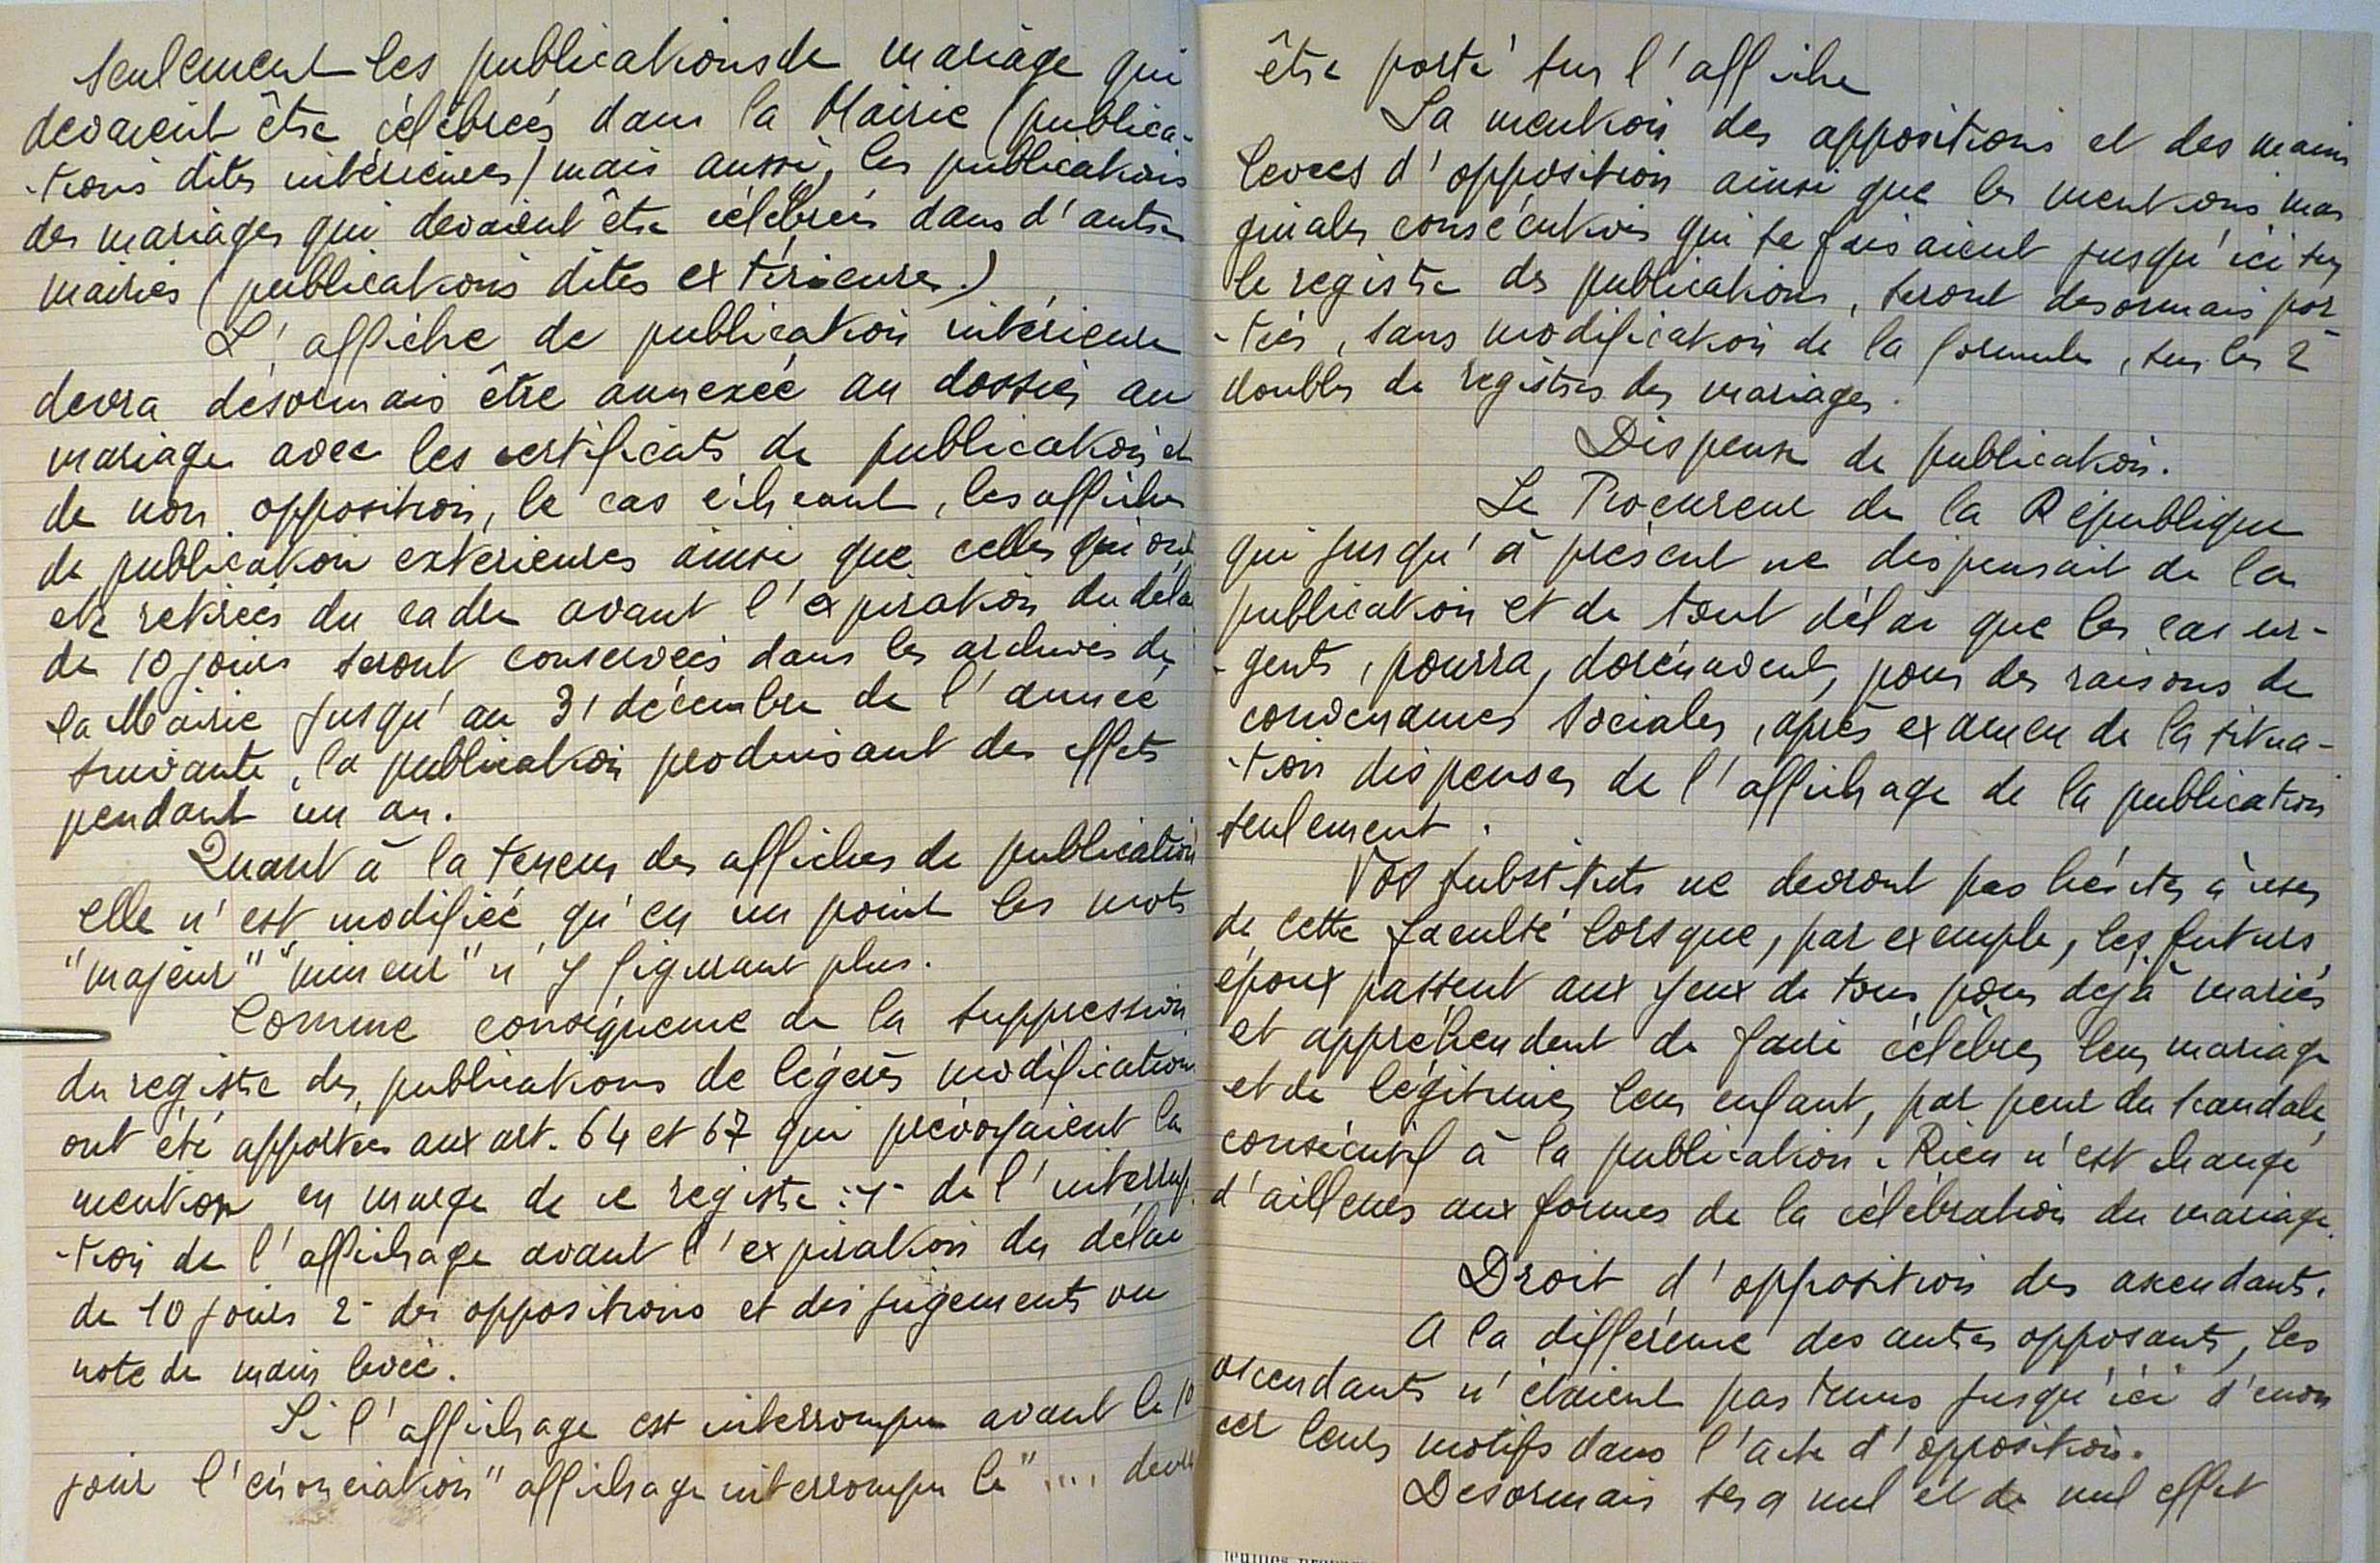 seulement les publications de mariage qui
devaient être célébrées dans la Mairie (publica-
-tions dites intérieures) mais aussi, les publications
des mariages qui devaient être célébrés dans d'autres
mairies (publications dites extérieures.)
L'affiche de publication intérieure
devra désormais être annexée au dossier au
mariage avec les certificats de publication et
de non opposition, le cas échéant, les affiches
de publication extérieures ainsi que celles qui ont
été retirées du cadre avant l'expiration du délai
de 10 jours seront conservées dans les archives de
la Mairie jusqu'au 31 décembre de l'année
suivante, la publication produisant des effets
pendant un an.
Quant à la teneur des affiches de publication
elle n'est modifiée qu'en un point les mots
"majeur" "mineur" n'y figurant plus.
Comme conséquence de la suppression
du registre des publications de légères modifications
ont été apportées aux art. 64 et 67 qui prévoyaient la
mention en marge de ce registre : 1- de l'interrup
-tion de l'affichage avant l'expiration du délai
de 10 jours 2- des oppositions et des jugements ou
note de main levée.
Si l'affichage est interrompu avant le 10
jour l'énonciation "affichage interrompu le" .... devra
être porté sur l'affiche
La mention des oppositions et des mains
levées d'opposition ainsi que les mentions mar
ginales consécutives qui se faisaient jusqu'ici sur
le registre des publications, seront desormais por-
-tées, sans modification de la formule, sur les 2
doubles de registres des mariages.
Dispense de publication.
Le Procureur de la République
qui jusqu'à présent ne dispensait de la
publication et de tout délai que les cas ur-
-gents, pourra, dorénavent, pour des raisons de
convenances sociales, après examen de la situa-
-tion dispenser de l'affichage de la publication
seulement.
Vos substituts ne devront pas hésiter à user
de cette faculté lorsque, par exemple, les futurs
époux passent aux yeux de tous pour déjà mariés
et appréhendent de faire célébrer leur mariage
et de légitimer leur enfant, par peur du scandale,
consécutif à la publication. Rien n'est changé
d'ailleurs aux formes de la célébration du mariage.
Droit d'opposition des ascendants.
A la différence des autres opposants, les
ascendants n'étaient pas tenus jusqu'ici d'énon
cer leurs motifs dans l'acte d'opposition.
Desormais sera nul et de nul effet